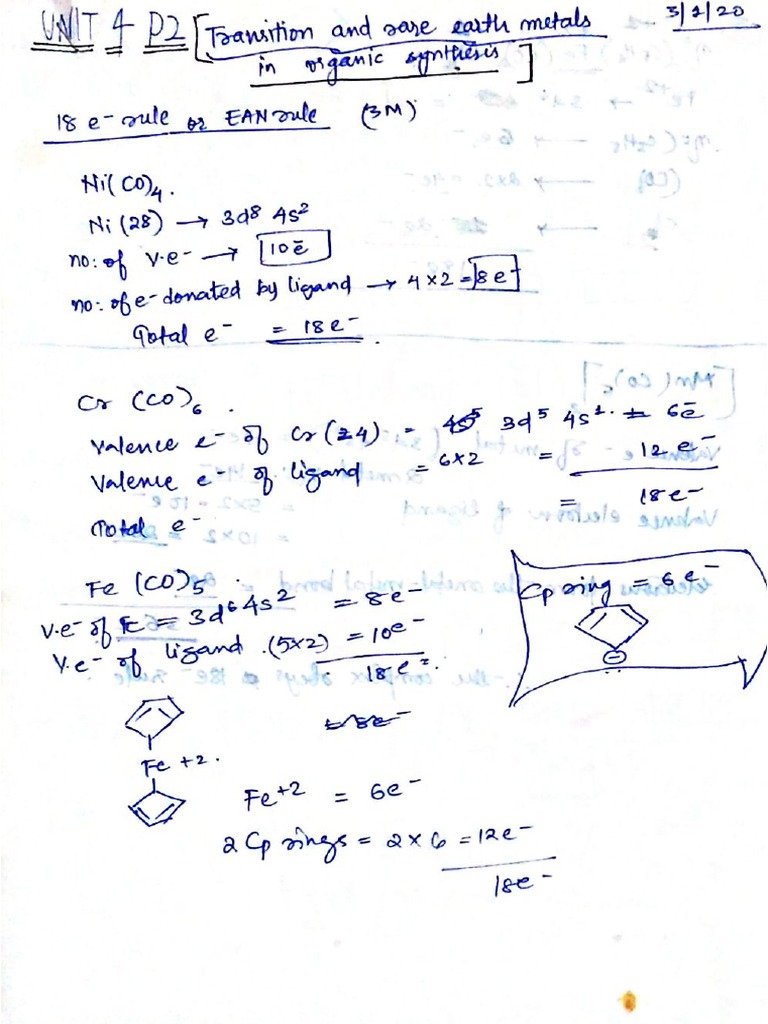 UNIT 4 P2 [Transition and rare earth metals
in organic synthesis]
3/2/20
18 e- rule or EAN rule (3M)
Ni(CO)4.
Ni (28) → 3d8 4s2
no: of v.e- → 10ē
no: of e- donated by ligand → 4×2 = 8e-
Total e- = 18e-.
Cr (CO)6.
Valence e- of Cr(24) = 3d5 4s1. = 6ē
Valence e- of ligand = 6×2 = 12 e-
Total e- = 18e-
Fe (CO)5
v.e- of = 3d6 4s2 = 8e-
v.e- of ligand (5×2) = 10e-
18e-.
Cp ring = 6e-
⊖
Fe +2.
Fe+2 = 6e-
2 Cp rings = 2 × 6 = 12e-
18e-